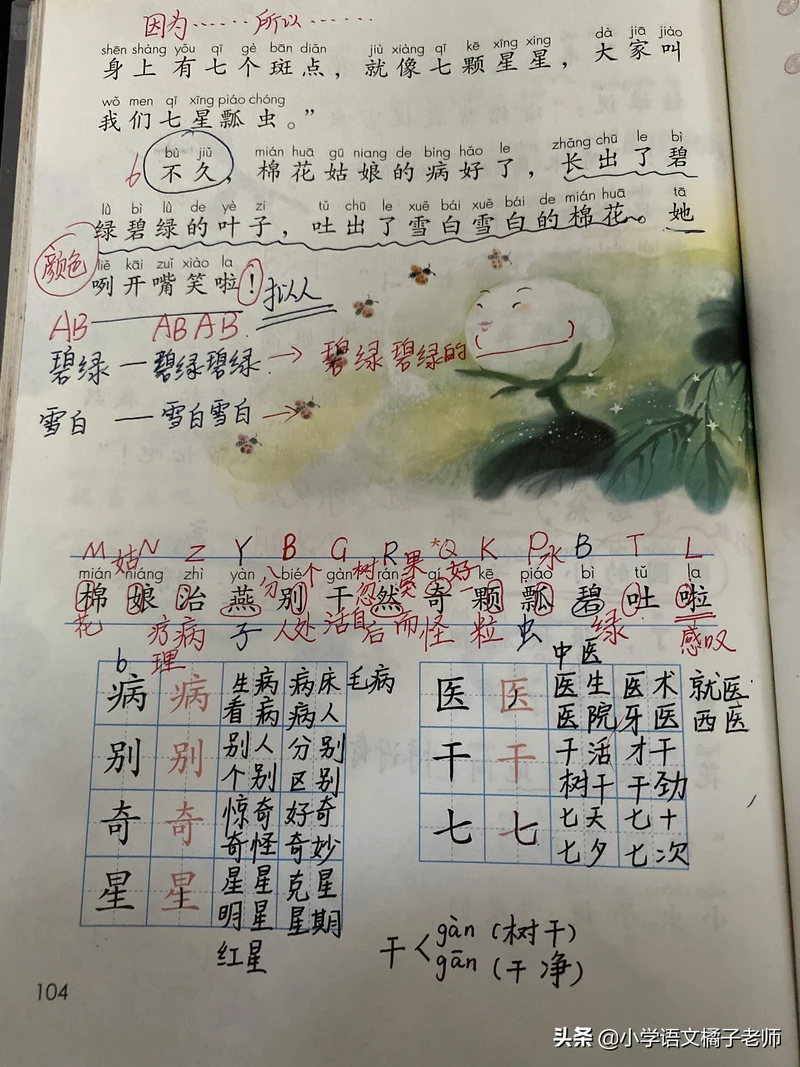 因为…… 所以……
shēn shàng yǒu qī gè bān diǎn jiù xiàng qī kē xīng xing dà jiā jiào
身上有七个斑点，就像七颗星星，大家叫
wǒ men qī xīng piáo chóng
我们七星瓢虫。”
bù jiǔ mián huā gū niang de bìng hǎo le zhǎng chū le bì
6 不久，棉花姑娘的病好了，长出了碧
lǜ bì lǜ de yè zi tǔ chū le xuě bái xuě bái de mián huā tā
绿碧绿的叶子，吐出了雪白雪白的棉花。她
颜色
liě kāi zuǐ xiào la
咧开嘴笑啦！ 拟人
AB ABAB
碧绿—碧绿碧绿 → 碧绿碧绿的
雪白—雪白雪白 →
M N Z Y B G R Q K P B T L
姑 分 八 个 树 忽 果 突 好 一 水
mián niáng zhì yàn bié gàn rán qí kē piáo bì tǔ la
棉 娘 治 燕 别 干 然 奇 颗 瓢 碧 吐 啦
花 疗 病 子 人 处 活 自 后 而 怪 粒 虫 绿 感叹
理
b 中医
病 病 生病 病床 毛病
看病 病人
别 别 别人 分别
个别 区别
奇 奇 惊奇 好奇
奇怪 奇妙
星 星 星星 克星
明星 星期
红星
医 医 医生 医术 就医
医院 牙医 西医
干 干 干活 才干
树干 干劲
七 七 七天 七十
七夕 七次
干 gàn (树干)
gān (干净)
104
头条 @小学语文橘子老师